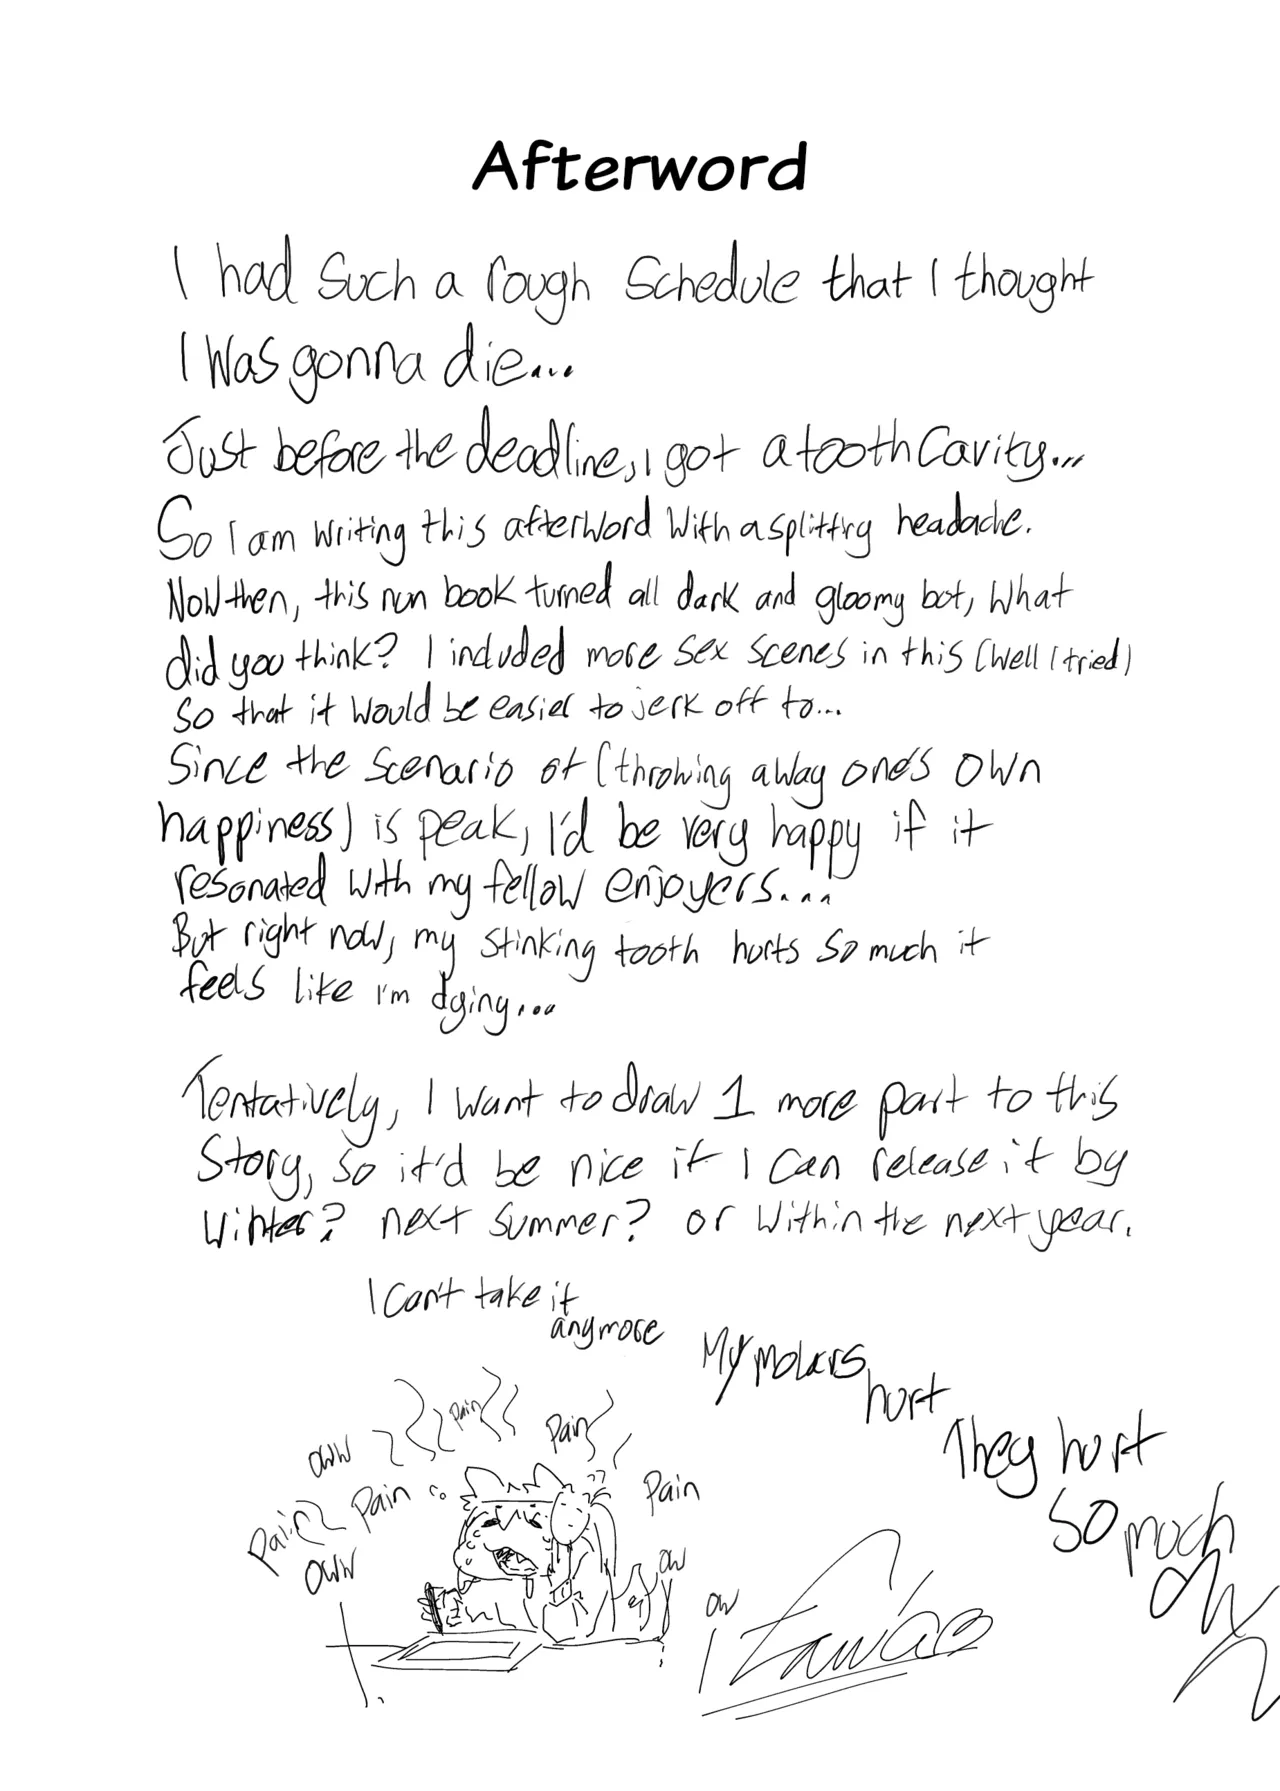 Afterword
I had such a rough schedule that I thought
I was gonna die...
Just before the deadline, I got a tooth cavity...
So I am writing this afterword with a splitting headache.
Now then, this nun book turned all dark and gloomy bot, what
did you think? I included more sex scenes in this (well I tried)
so that it would be easier to jerk off to...
Since the scenario of (throwing away one's own
happiness) is peak, I'd be very happy if it
resonated with my fellow enjoyers...
But right now, my stinking tooth hurts so much it
feels like I'm dying...
Tentatively, I want to draw 1 more part to this
story, so it'd be nice if I can release it by
winter? next summer? or within the next year.
I can't take it
anymore
My molars
hurt
They hurt
so much
Pain
Pain
oww
Pain
Pain
Pain
oww
ow
ow